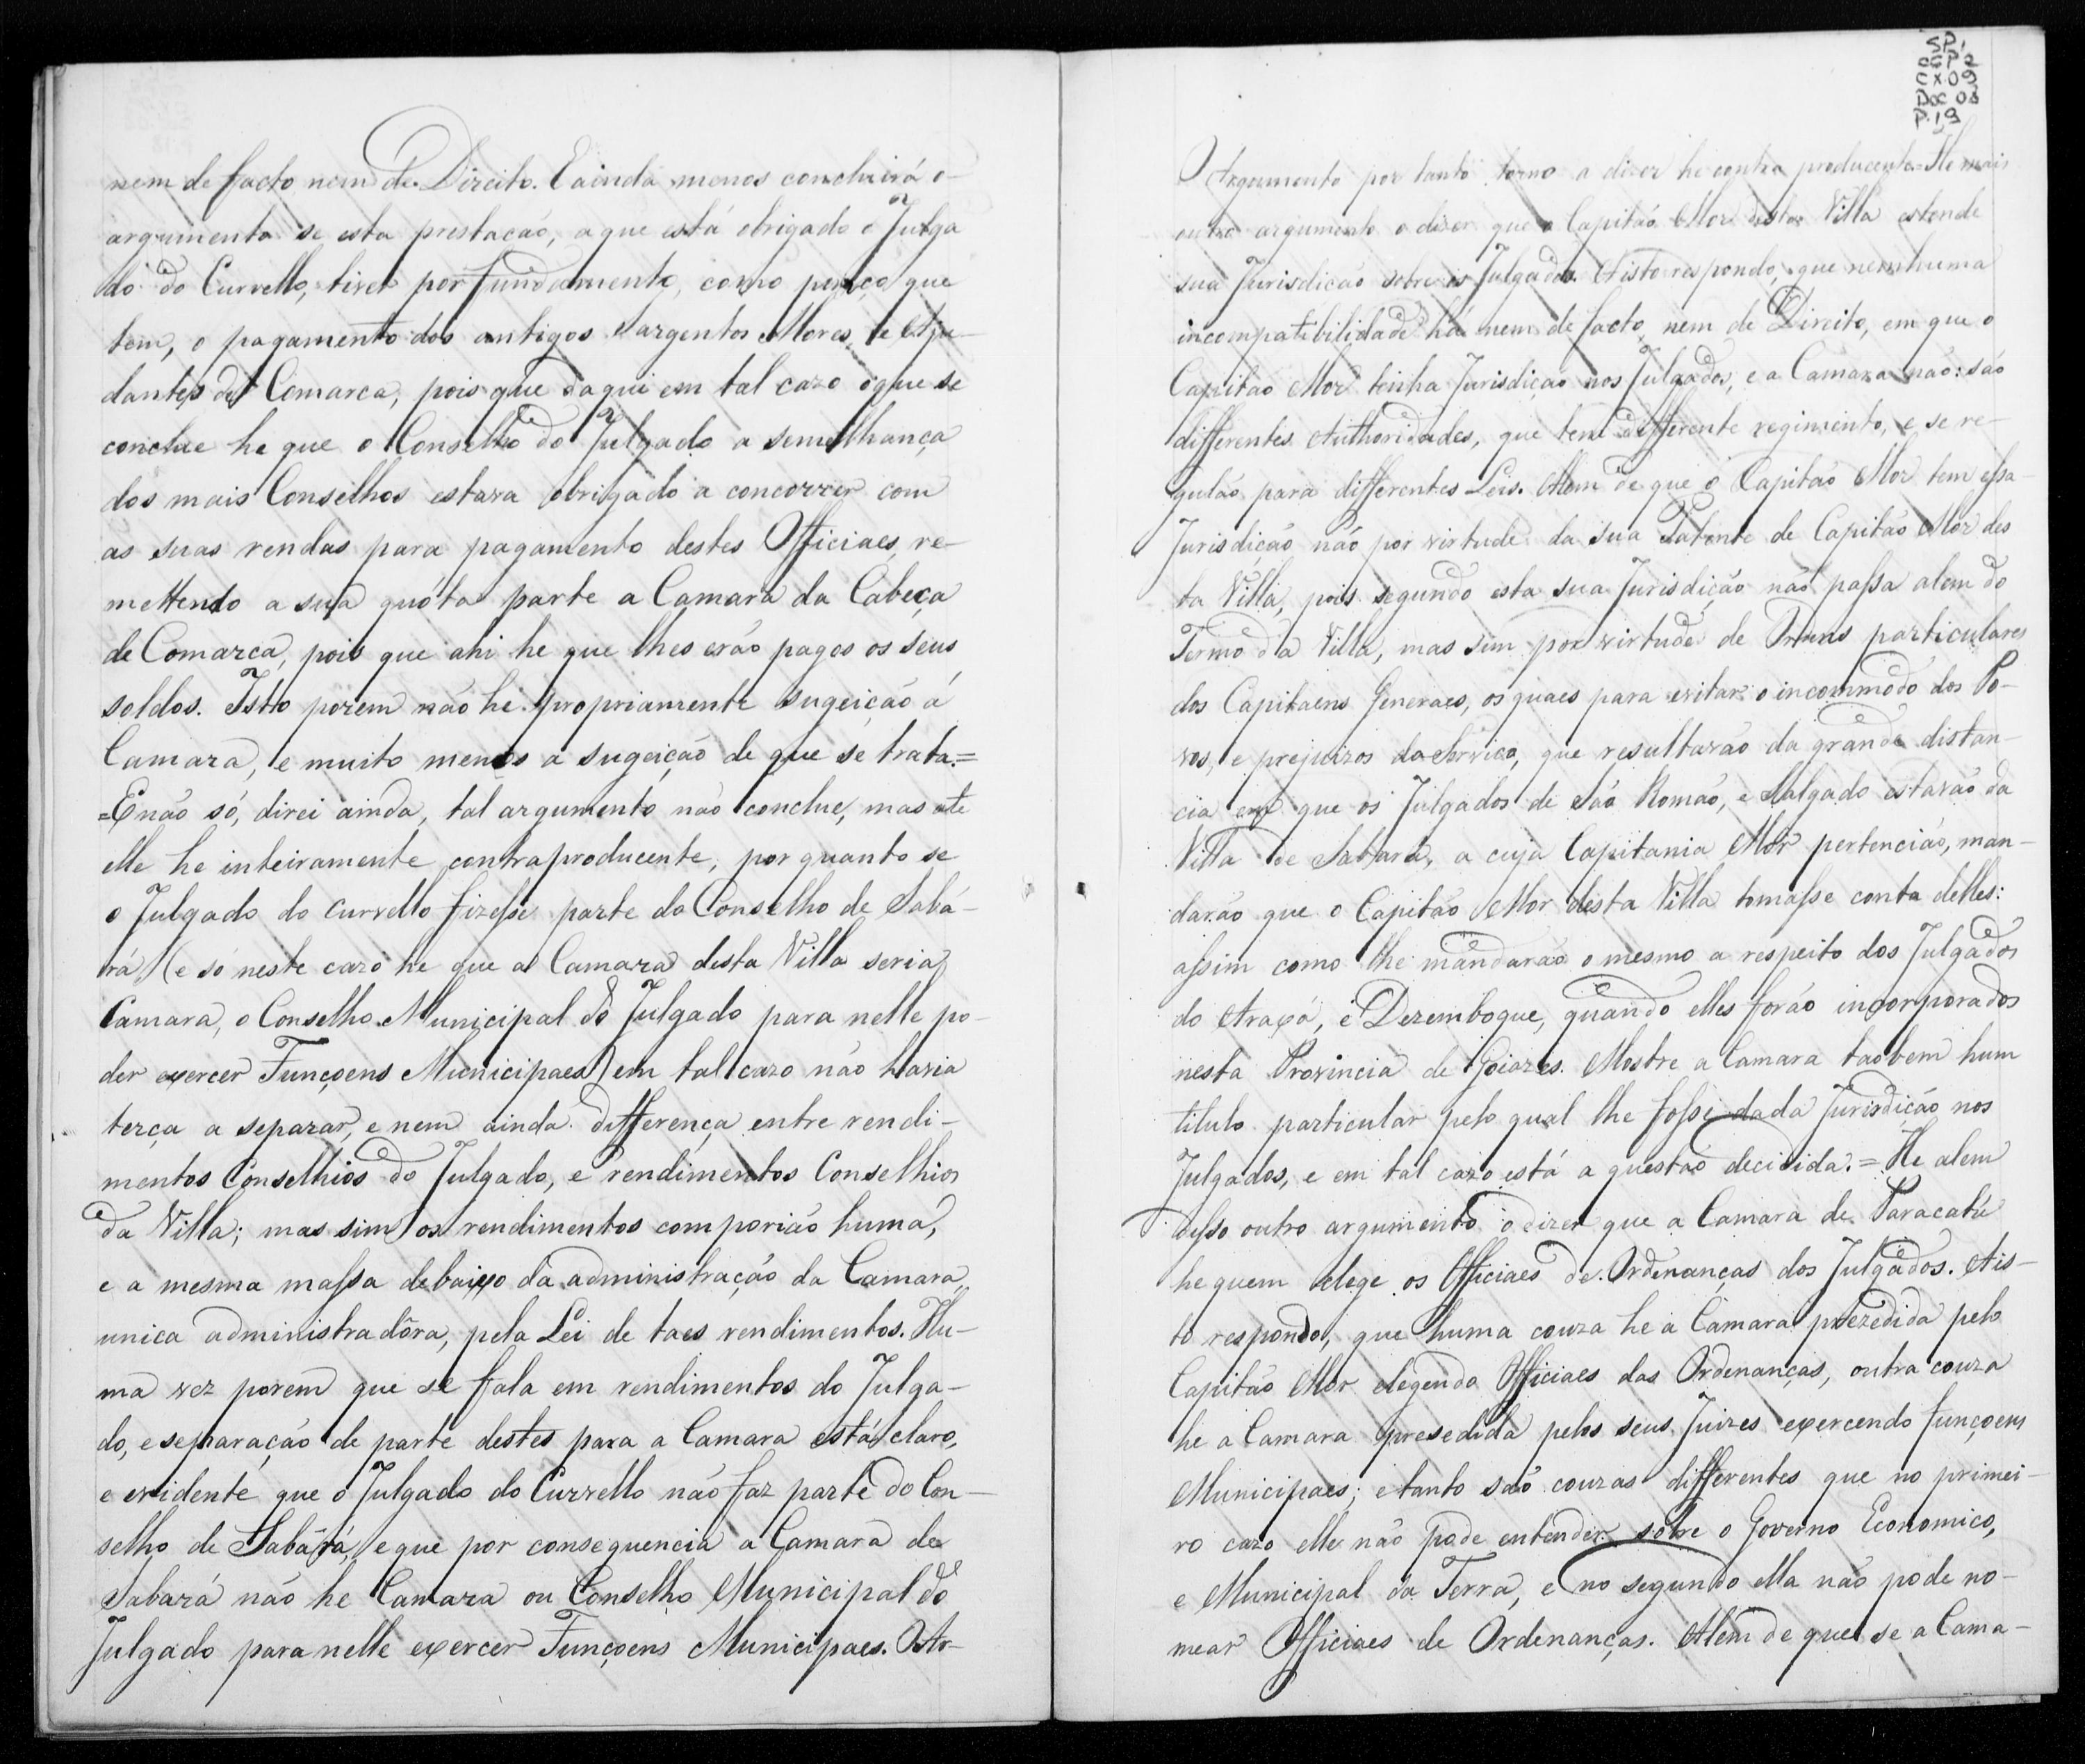 nem de facto nem de Direito. E ainda menos concluirá o
argumento se esta prestacão, a que está obrigado o Julga
do do Currello, tiver por fundamento, como penço que
tem, o pagamento dos antigos Sargentos Mores, e Aju-
dantes de Comarca, pois que daqui em tal cazo o que se
conclue he que o Conselho do Julgado a semelhança
dos mais Conselhos estava obrigado a concorrer com
as suas rendas para pagamento destes Officiaes, re-
mettendo a sua quóta parte a Camara da Cabeça
de Comarca, pois que ahi he que lhes erão pagos os seus
soldos. Isto porem não he propriamente sugeição á
Camara, e muito menos a sugeição de que se trata.=
=E não só, direi ainda, tal argumento não conclue, mas ate
elle he inteiramente contraproducente, por quanto se
o Julgado do Currello fizesse parte do Conselho de Sabá-
rá (e só neste cazo he que a Camara desta Villa seria
Camara, o Conselho Municipal do Julgado para nelle po-
der exercer Funçoens Municipaes) em tal cazo não havia
terça a separar, e nem ainda differença entre rendi-
mentos Conselhios do Julgado, e rendimentos Conselhios
da Villa; mas sim os rendimentos comporião huma,
e a mesma massa debaixo da administração da Camara,
unica administradôra, pela Lei de taes rendimentos. Hu-
ma vez porem que se fala em rendimentos do Julga-
do, e separação de parte destes para a Camara está claro,
e evidente que o Julgado do Currello não faz parte do Con-
selho de Sabará, e que por consequencia a Camara de
Sabará não he Camara ou Conselho Municipal do
Julgado para nelle exercer Funçoens Municipaes. O Ar-
SP1
CGP2
CX09
DOC 08
P.19
Argumento por tanto torno a dizer he contra producente= He mais
outro argumento o dizer que o Capitão Mor desta Villa estende
sua Jurisdicão sobre os Julgados. A isto respondo, que nenhuma
incompatibilidade há nem de facto, nem de Direito, em que o
Capitão Mor tenha Jurisdição nos Julgados, e a Camara não: são
differentes Authoridades, que tem differente regimento, e se re-
gulão para differentes Leis. Alem de que o Capitão Mor tem essa
Jurisdição não por virtude da sua Patente de Capitão Mór des
ta Villa, pois segundo esta sua Jurisdição não passa alem do
Termo da Villa, mas sim por virtude de Ordens particulares
dos Capitaens Generaes, os quaes para evitar o incommodo dos Po-
vos, e prejuizos do Serviço, que resultarão da grande distan-
cia em que os Julgados de São Romão, e Salgado estavão da
Villa de Sabará, a cuja Capitania Mór pertencião, man-
darão que o Capitão Mor desta Villa tomasse conta delles:
assim como lhe mandarão o mesmo a respeito dos Julgados
do Araxá, e Dezemboque, quando elles forão incorporados
nesta Provincia de Goiazes. Mostre a Camara taobem hum
titulo particular pelo qual lhe fosse dada Jurisdição nos
Julgados, e em tal cazo está a questão decidida.= He alem
disso outro argumento o dizer que a Camara de Paracatú
he quem elege os Officiaes de Ordenanças dos Julgados. A is-
to respondo, que huma couza he a Camara prezedida pelo
Capitão Mor elegendo Officiaes das Ordenanças, outra couza
he a Camara presedida pelos seus Juizes exercendo funçoens
Municipaes; e tanto são couzas differentes que no primei-
ro cazo elle não pode entender sobre o Governo Economico,
e Municipal da Terra, e no segundo ella não pode no-
mear Officiaes de Ordenanças. Alem de que se a Cama-